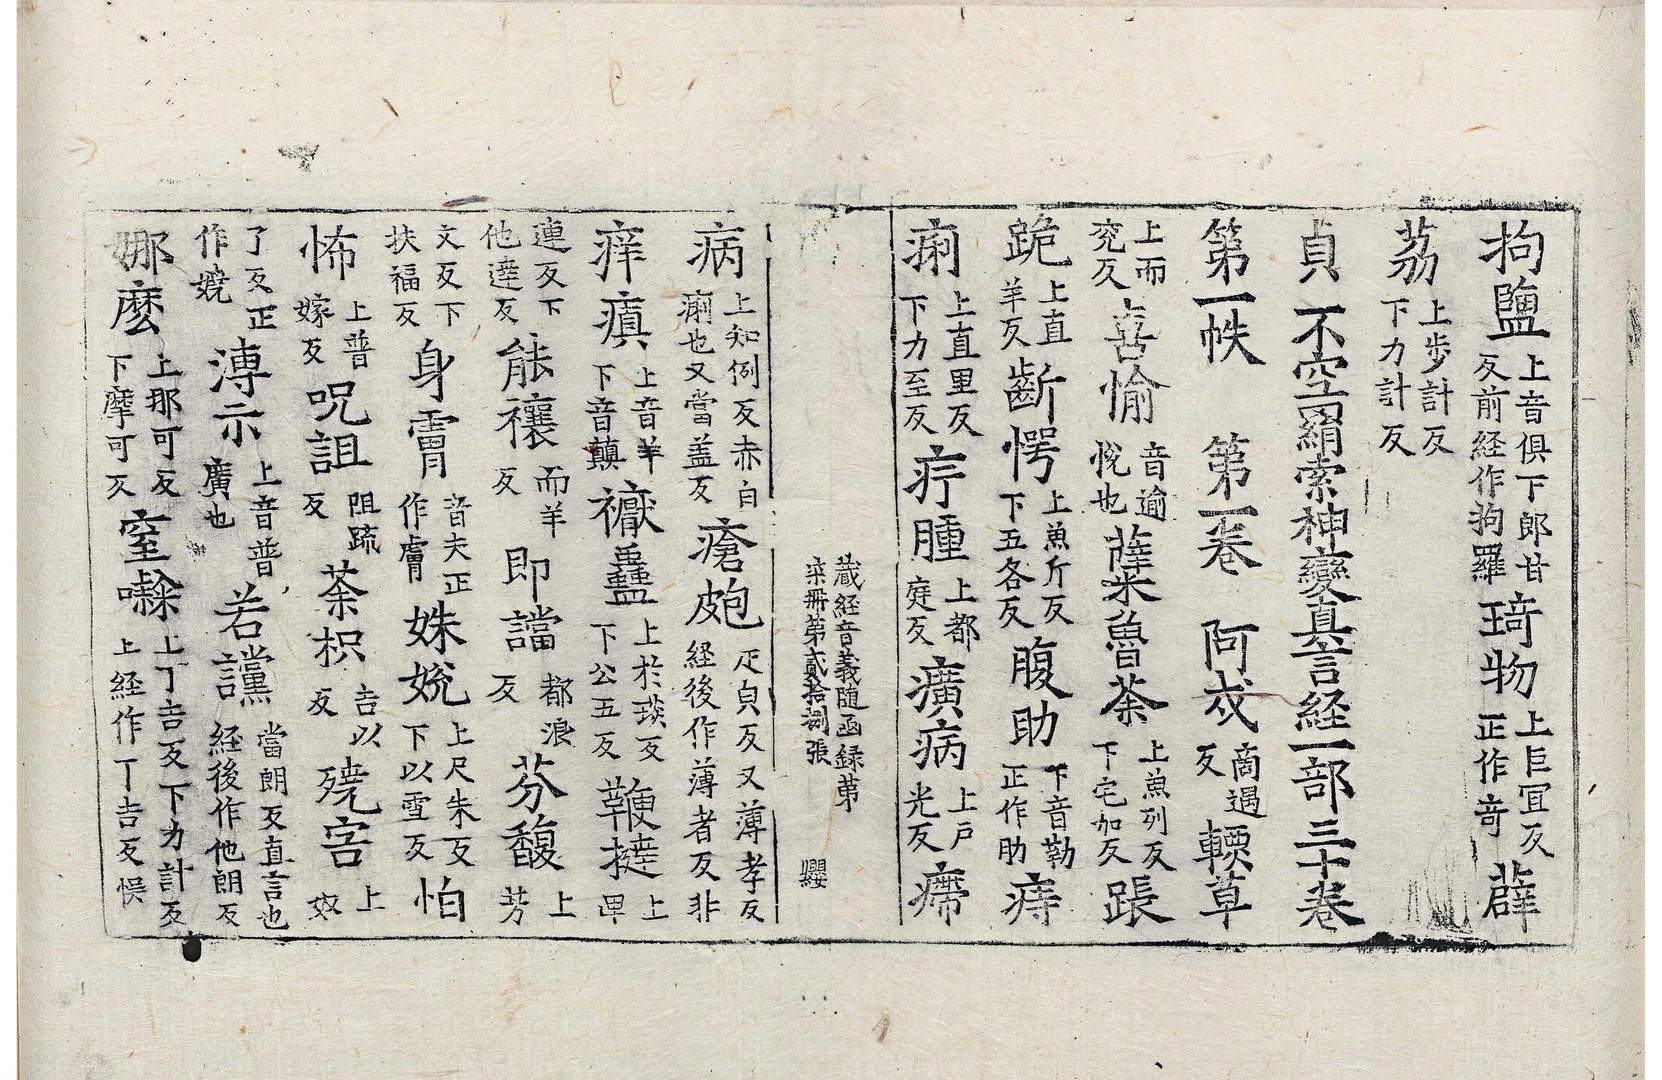 拘鹽上音俱下郎甘反前経作拘羅琦物上巨冝反正作竒薜
茘上步計反下力計反
貞不空羂索神變真言経一部三十巻
第一帙 第一巻 阿㦯商遇反輭草
上而兖反喜愉音逾悅也薩米魯荼上魚列反下宅加反踞
跪上直羊反齗愕上魚斤反下五各反腹肋下音勒正作肋痔
痢上直里反下力至反疔腫上都庭反癀病上戸光反㿃
藏経音義随函録第
柒冊第貳拾捌張 纓
病上知例反赤白痢也又當盖反瘡皰疋皃反又薄孝反経後作薄者反非
痒瘨上音羊下音顛禳蠱上於琰反下公五反鞕撻上卑
連反下他達反能禳而羊反即讜都浪反芬馥上芳
文反下扶福反身膚音夫正作膚姝娧上尺朱反下以雪反怕
怖上普嫁反呪詛阻䟽反荼枳吉以反殑害上奴
了反正作嬈溥示上音普廣也若讜當朗反直言也経後作他朗反
娜麽上那可反下摩可反窒㘑上丁吉反下力計反上経作丁吉反悮